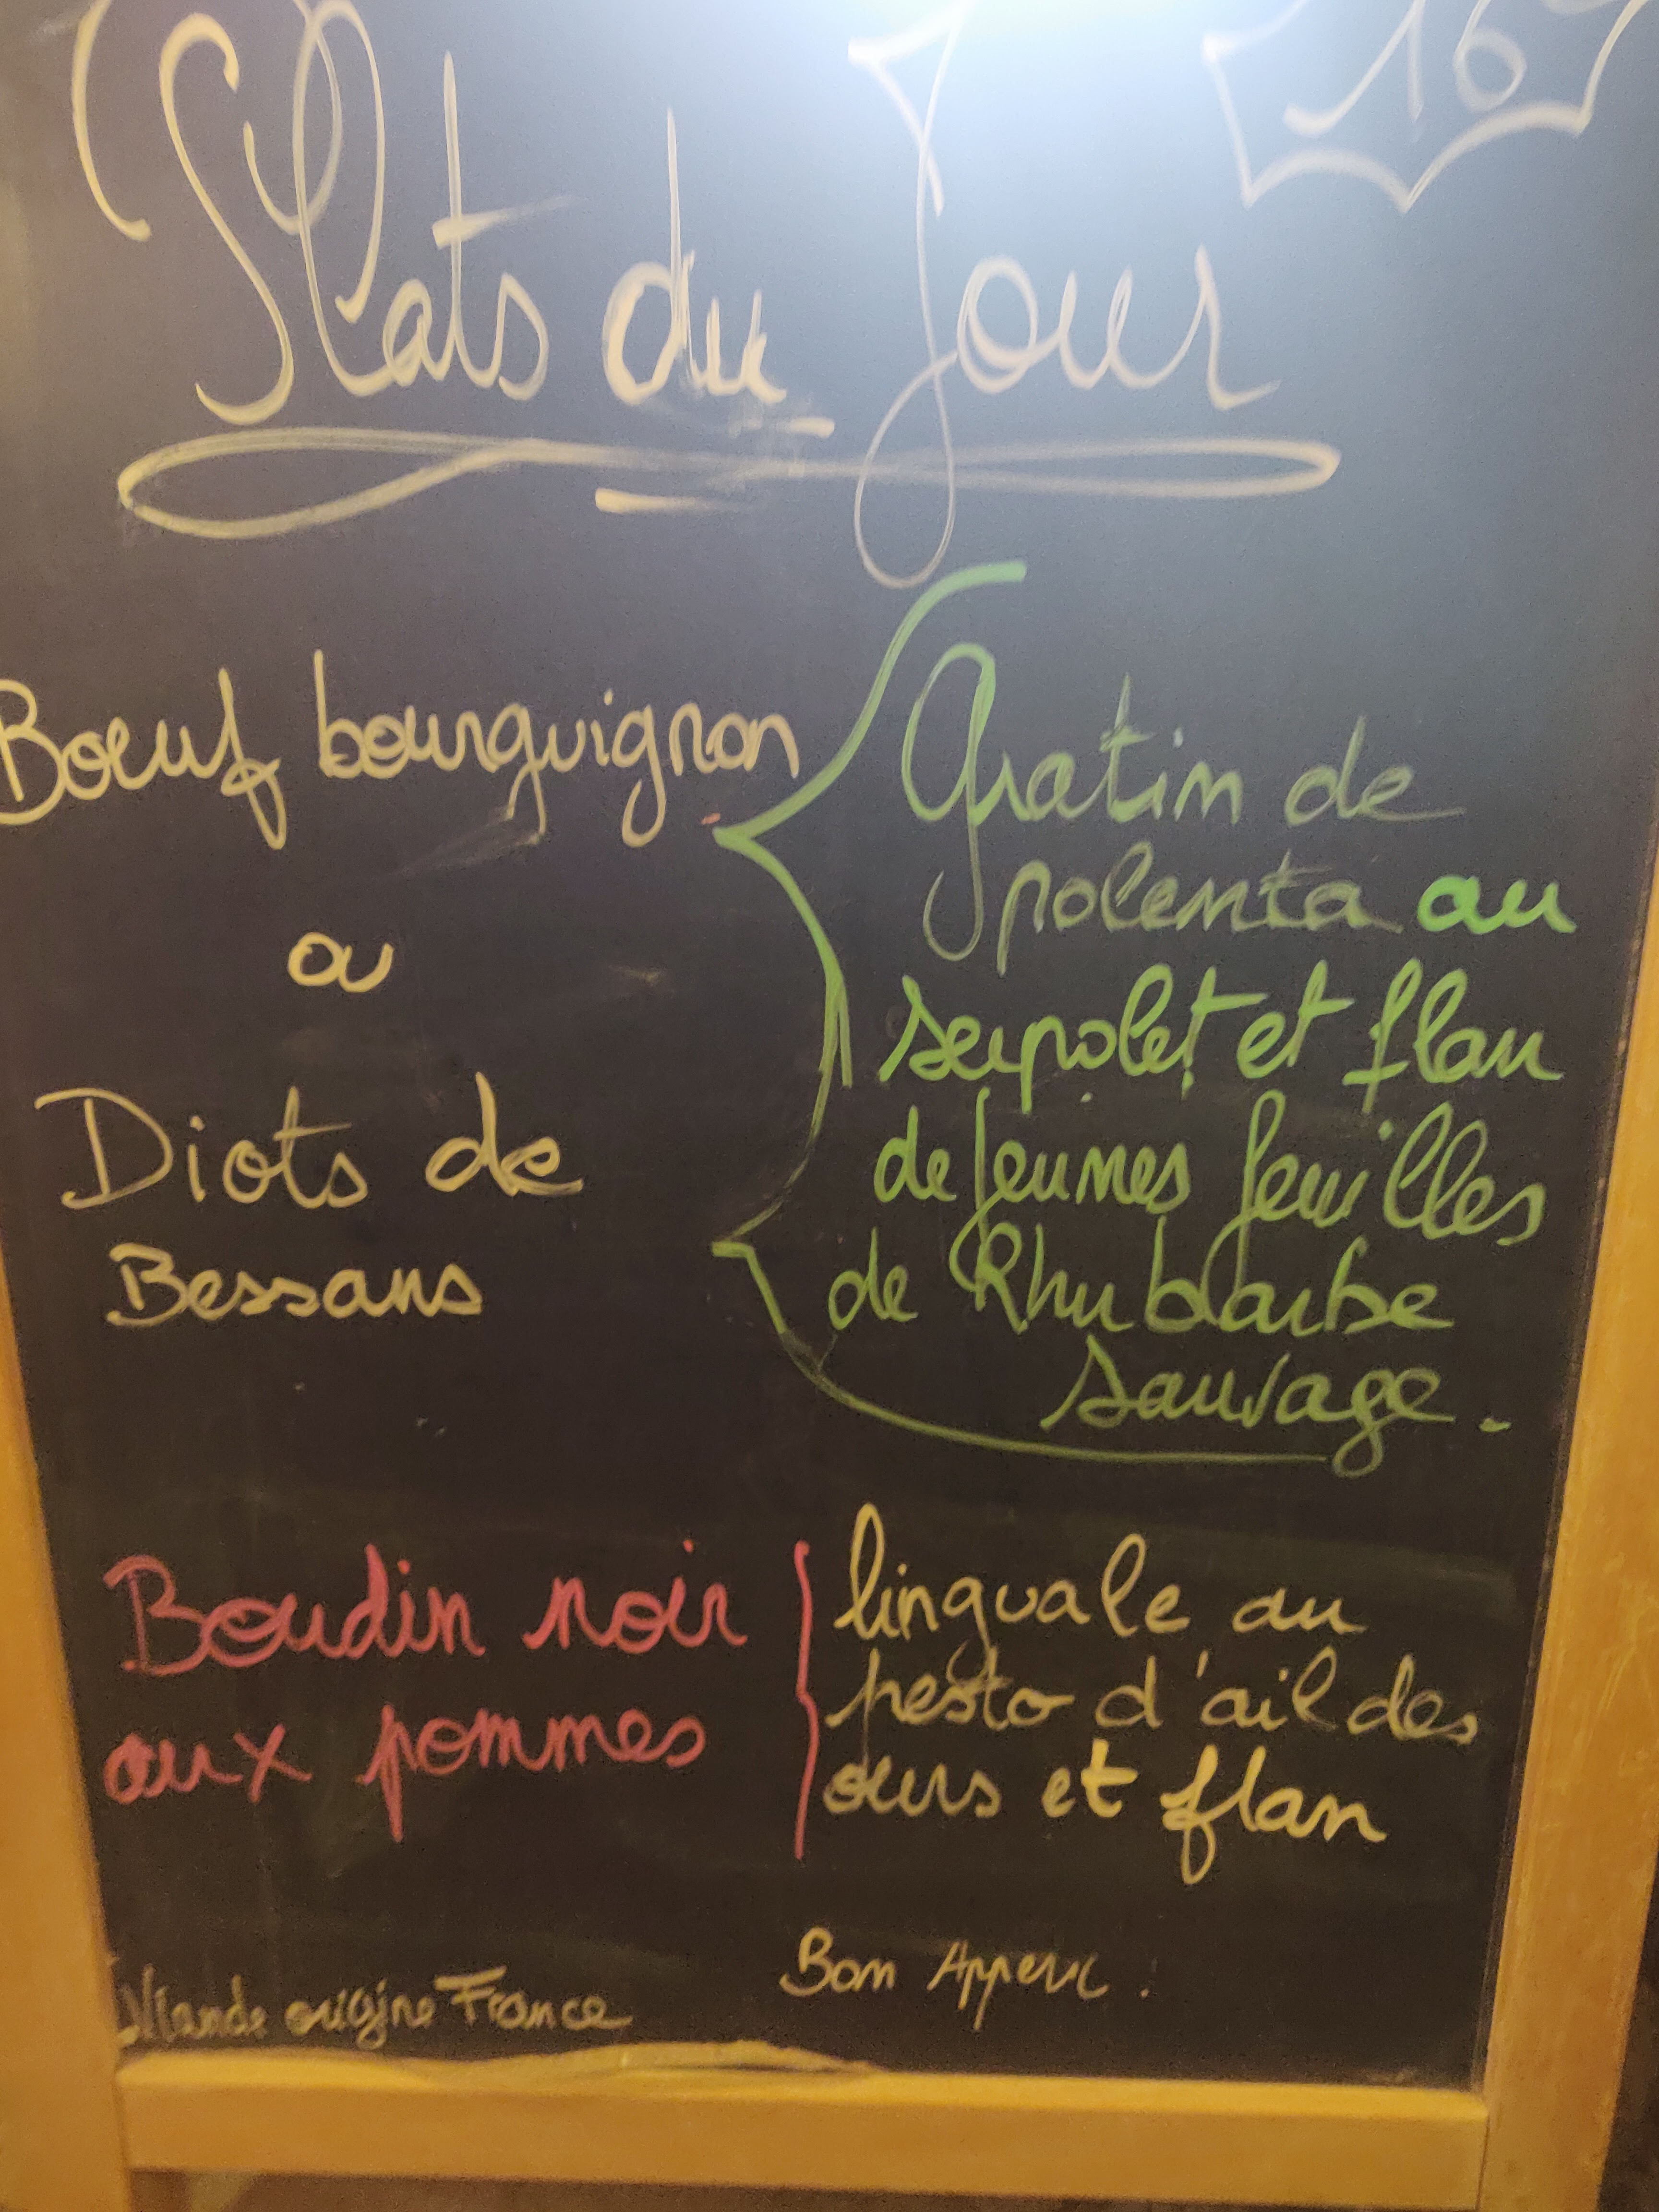 Plats du Jour
16
Boeuf bourguignon
ou
Diots de
Bessans
Gratin de
polenta au
serpolet et flan
de Jeunes feuilles
de Rhubarbe
sauvage.
Boudin noir
aux pommes
linguale au
pesto d'ail des
ours et flan
Viande origine France
Bon